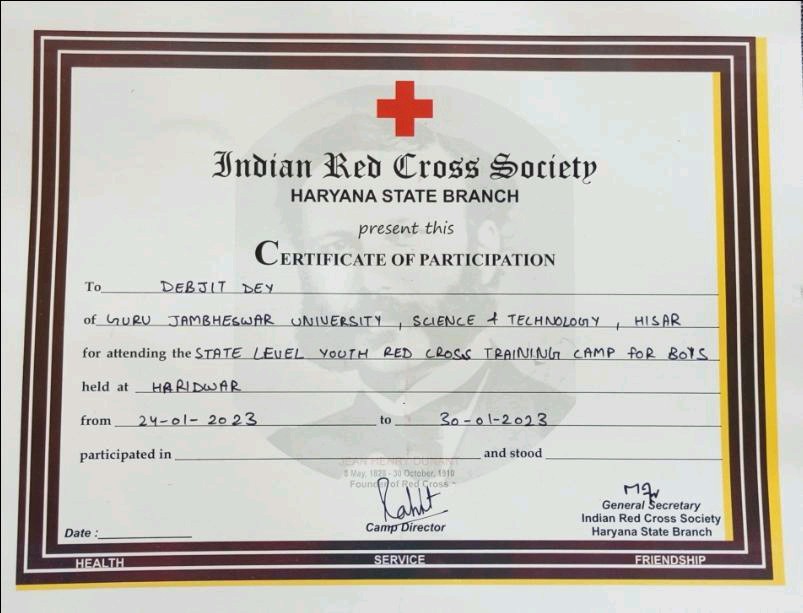 Indian Red Cross Society
HARYANA STATE BRANCH
present this
CERTIFICATE OF PARTICIPATION
To DEBJIT DEY
of GURU JAMBHESWAR UNIVERSITY, SCIENCE & TECHNOLOGY, HISAR
for attending the STATE LEVEL YOUTH RED CROSS TRAINING CAMP FOR BOYS
held at HARIDWAR
from 24-01-2023 to 30-01-2023
participated in and stood
JEAN HENRY DUNANT
8 May, 1828 - 30 October, 1910
Founder of Red Cross
Rahit
Camp Director
General Secretary
Indian Red Cross Society
Haryana State Branch
Date :
HEALTH SERVICE FRIENDSHIP